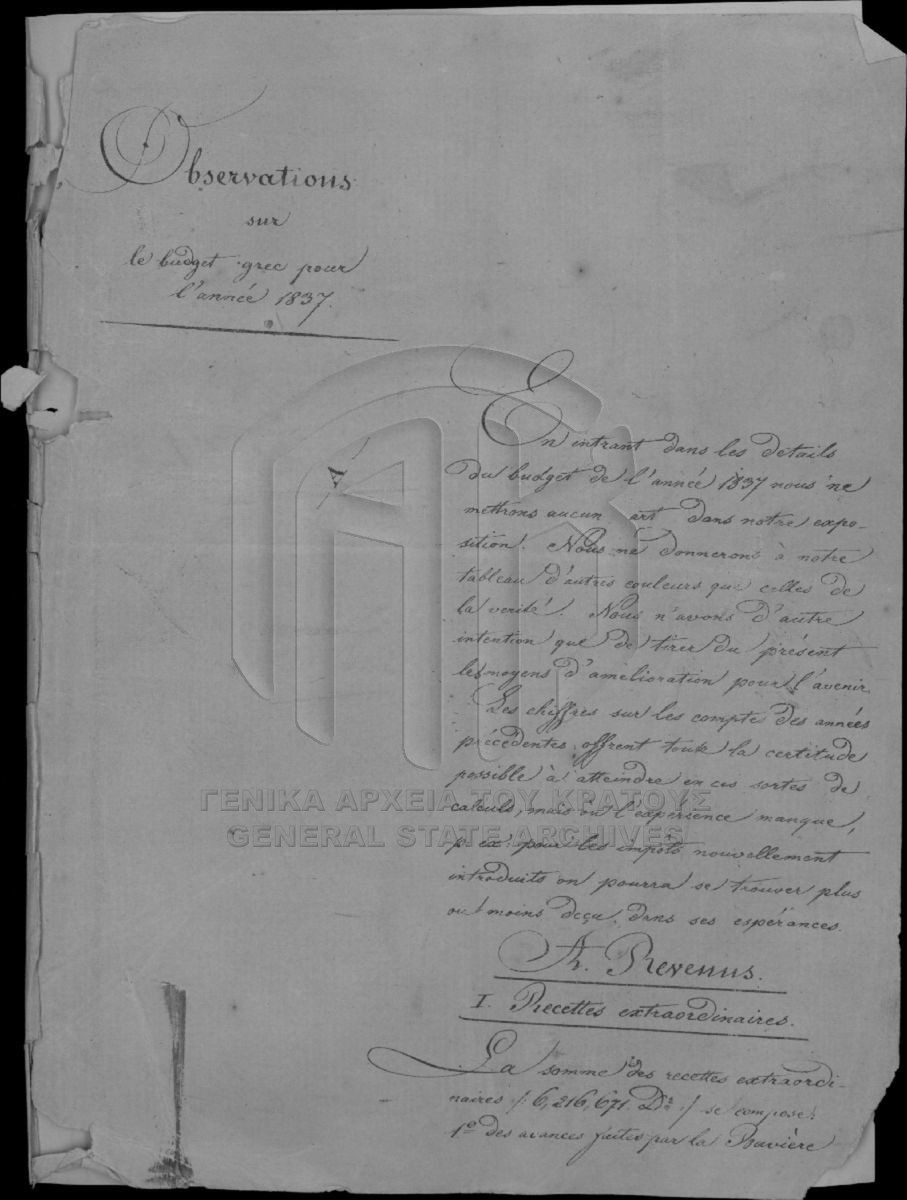 Observations
sur
le budget grec pour
l'année 1837.
A
En intrant dans les details
du budget de l'année 1837 nous ne
mettrons aucun art dans notre expo-
sition. Nous ne donnerons à notre
tableau d'autres couleurs que celles de
la verité. Nous n'avons d'autre
intention que de tirer du présent
les moyens d'amelioration pour l'avenir.
Les chiffres sur les comptes des années
précédentes offrent toute la certitude
possible à atteindre en ces sortes de
calculs, mais où l'espérience manque,
p. ex: pour les impôts nouvellement
introduits on pourra se trouver plus
ou moins deçu dans ses espérances.
A. Revenus.
I. Recettes extraordinaires.
La somme des recettes extraordi-
naires /: 6,216,671 Dr. :/ se compose:
1º des avances faites par la Bavière
ΓΕΝΙΚΑ ΑΡΧΕΙΑ ΤΟΥ ΚΡΑΤΟΥΣ
GENERAL STATE ARCHIVES